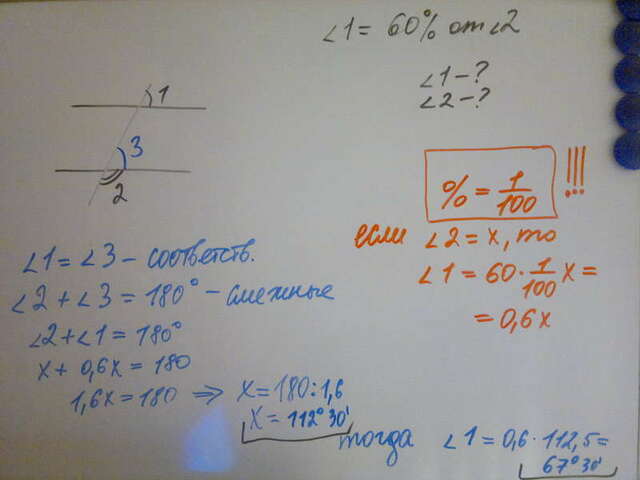 ∠1 = 60% от ∠2
∠1 - ?
∠2 - ?
1
3
2
% = 1/100 !!!
если ∠2 = x, то
∠1 = 60 · 1/100 x =
= 0,6x
∠1 = ∠3 - соответств.
∠2 + ∠3 = 180° - смежные
∠2 + ∠1 = 180°
x + 0,6x = 180
1,6x = 180 ⇒ x = 180 : 1,6
x = 112° 30'
тогда ∠1 = 0,6 · 112,5 =
67° 30'